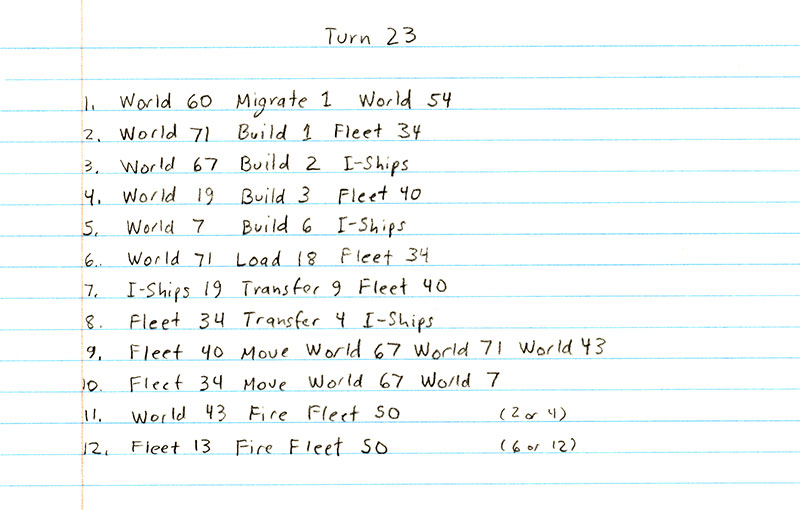 Turn 23
1. World 60 Migrate 1 World 54
2. World 71 Build 1 Fleet 34
3. World 67 Build 2 I-Ships
4. World 19 Build 3 Fleet 40
5. World 7 Build 6 I-Ships
6. World 71 Load 18 Fleet 34
7. I-Ships 19 Transfer 9 Fleet 40
8. Fleet 34 Transfer 4 I-Ships
9. Fleet 40 Move World 67 World 71 World 43
10. Fleet 34 Move World 67 World 7
11. World 43 Fire Fleet 50 (2 or 4)
12. Fleet 13 Fire Fleet 50 (6 or 12)